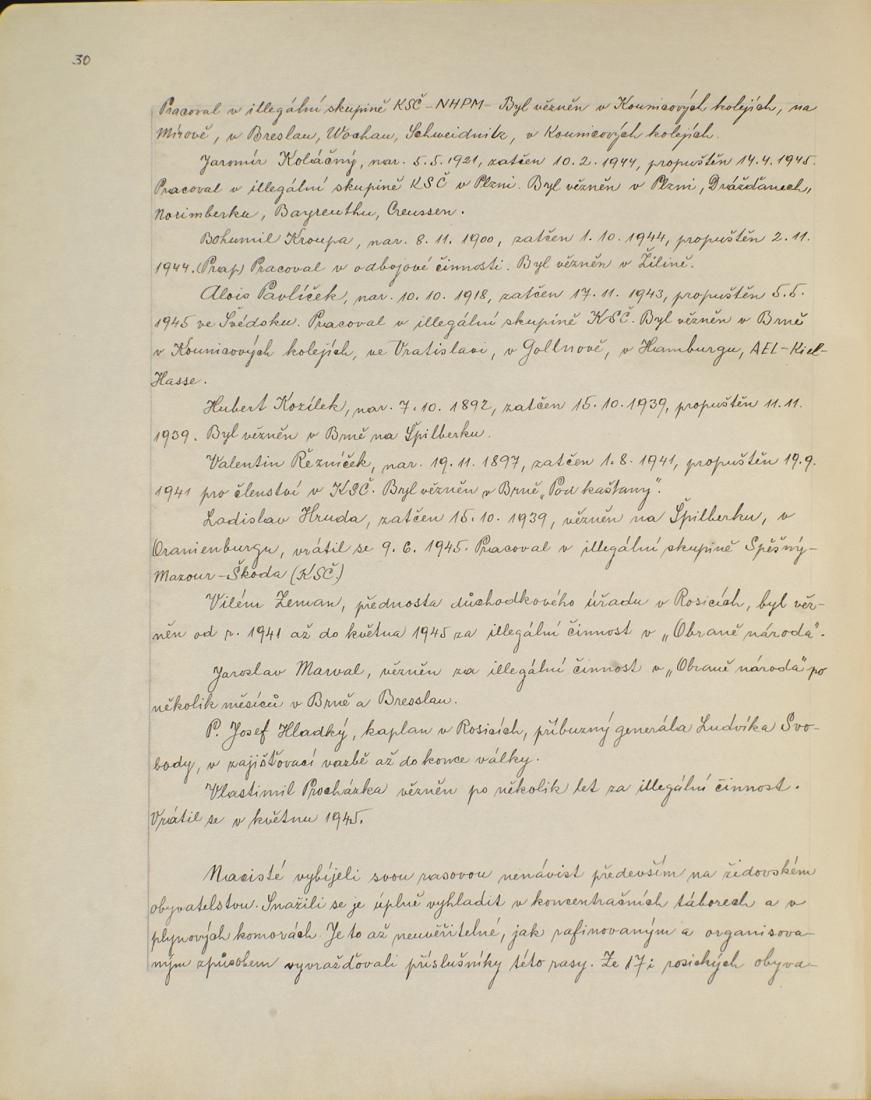 30
Pracoval v illegální skupině KSČ - NHPM - Byl vězněn v Kounicových kolejích, na
Mírově, v Breslau, Wochau, Schweidnitz, v Kounicových kolejích.
Jaromír Koláčný, nar. 5.5.1921, zatčen 10.2.1944, propuštěn 14.4.1945.
Pracoval v illegální skupině KSČ v Plzni. Byl vězněn v Plzni, Drážďanech,
Norimberku, Bayreuthu, Creussen.
Bohumil Kroupa, nar. 8.11.1900, zatčen 1.10.1944, propuštěn 2.11.
1944. (Prap) Pracoval v odbojové činnosti. Byl vězněn v Žilině.
Alois Pavlíček, nar. 10.10.1918, zatčen 17.11.1943, propuštěn 5.5.
1945 ve Švédsku. Pracoval v illegální skupině KSČ. Byl vězněn v Brně
v Kounicových kolejích, ve Vratislavi, v Gollnově, v Hamburgu, AEL-Kiel-
Hasse.
Hubert Kozílek, nar. 7.10.1892, zatčen 15.10.1939, propuštěn 11.11.
1939. Byl vězněn v Brně na Špilberku.
Valentin Řezníček, nar. 19.11.1897, zatčen 1.8.1941, propuštěn 19.9.
1941 pro členství v KSČ. Byl vězněn v Brně „Pod kaštany".
Ladislav Hruda, zatčen 15.10.1939, vězněn na Špilberku, v
Oranienburgu, vrátil se 9.6.1945. Pracoval v illegální skupině Spěšný-
Mazour-Škoda (KSČ)
Vilém Zeman, přednosta důchodkového úřadu v Rosicích, byl věz-
něn od r. 1941 až do května 1945 za illegální činnost v „Obraně národa".
Jaroslav Marval, vězněn za illegální činnost v „Obraně národa" po
několik měsíců v Brně a Bresslau.
P. Josef Hladký, kaplan v Rosicích, příbuzný generála Ludvíka Svo-
body, v zajišťovací vazbě až do konce války.
Vlastimil Procházka vězněn po několik let za illegální činnost.
Vrátil se v květnu 1945.
Nacisté vybíjeli svou rasovou nenávist především na židovském
obyvatelstvu. Snažili se je úplně vyhladit v koncentračních táborech a v
plynových komorách. Je to až neuvěřitelné, jak rafinovaným a organisova-
ným způsobem vyvražďovali příslušníky této rasy. Ze 17i rosických obyva-